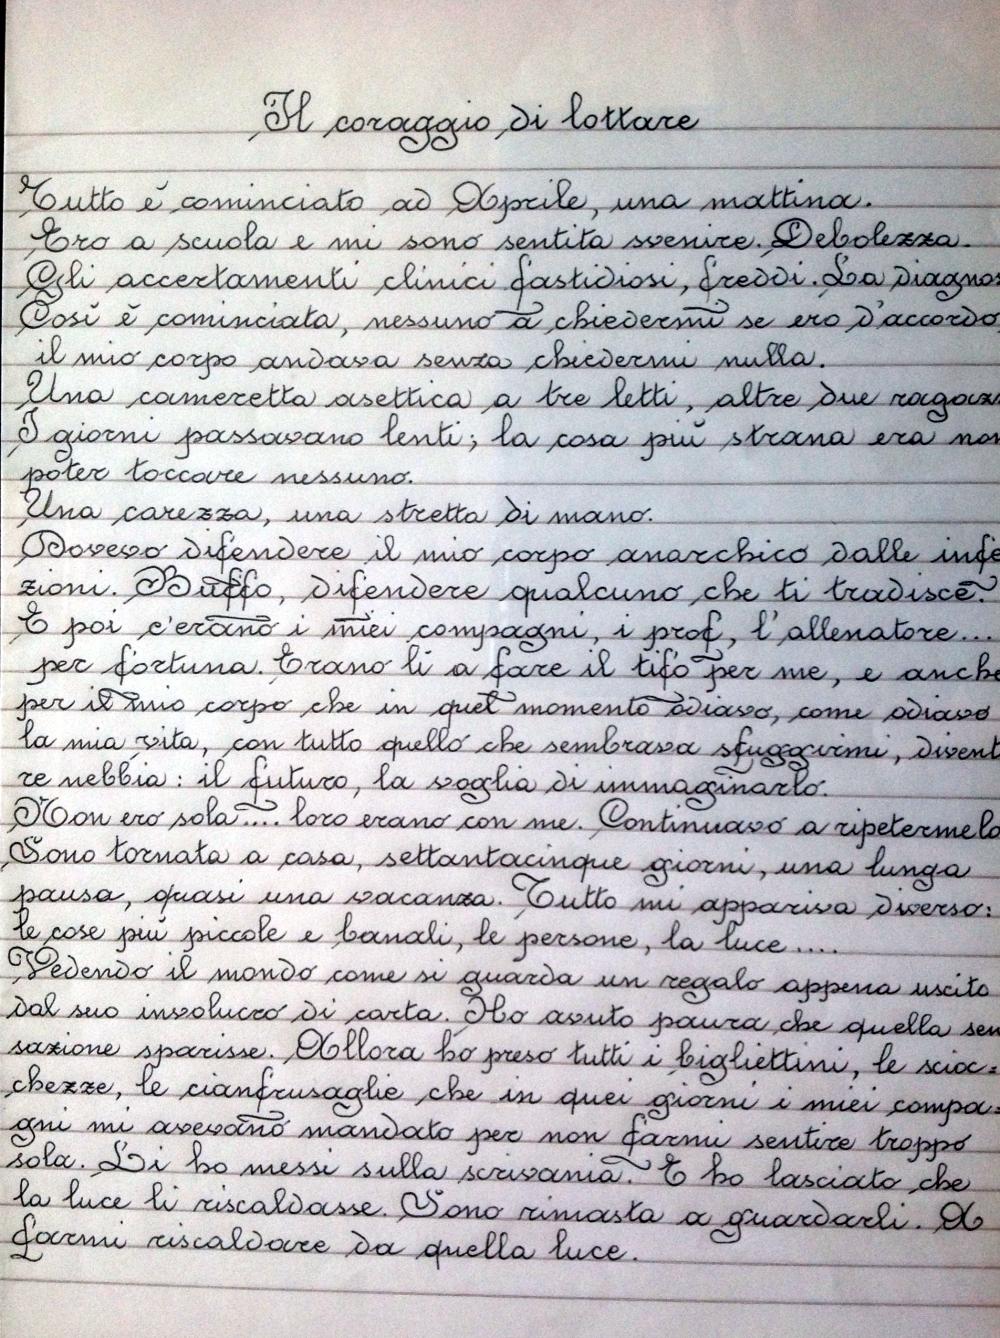 Il coraggio di lottare
Tutto è cominciato ad Aprile, una mattina.
Ero a scuola e mi sono sentita svenire. Debolezza.
Gli accertamenti clinici fastidiosi, freddi. La diagnos
Così è cominciata, nessuno a chiedermi se ero d'accordo,
il mio corpo andava senza chiedermi nulla.
Una cameretta asettica a tre letti, altre due ragazz
I giorni passavano lenti; la cosa più strana era non
poter toccare nessuno.
Una carezza, una stretta di mano.
Dovevo difendere il mio corpo anarchico dalle infe
zioni. Buffo, difendere qualcuno che ti tradisce.
E poi c'erano i miei compagni, i prof, l'allenatore...
per fortuna. Erano lì a fare il tifo per me, e anche
per il mio corpo che in quel momento odiavo, come odiavo
la mia vita, con tutto quello che sembrava sfuggirmi, divent
re nebbia: il futuro, la voglia di immaginarlo.
Non ero sola.... loro erano con me. Continuavo a ripetermelo
Sono tornata a casa, settantacinque giorni, una lunga
pausa, quasi una vacanza. Tutto mi appariva diverso:
le cose più piccole e banali, le persone, la luce....
Vedendo il mondo come si guarda un regalo appena uscito
dal suo involucro di carta. Ho avuto paura che quella sen
sazione sparisse. Allora ho preso tutti i bigliettini, le scioc=
chezze, le cianfrusaglie che in quei giorni i miei compa=
gni mi avevano mandato per non farmi sentire troppo
sola. Li ho messi sulla scrivania. E ho lasciato che
la luce li riscaldasse. Sono rimasta a guardarli. A
farmi riscaldare da quella luce.